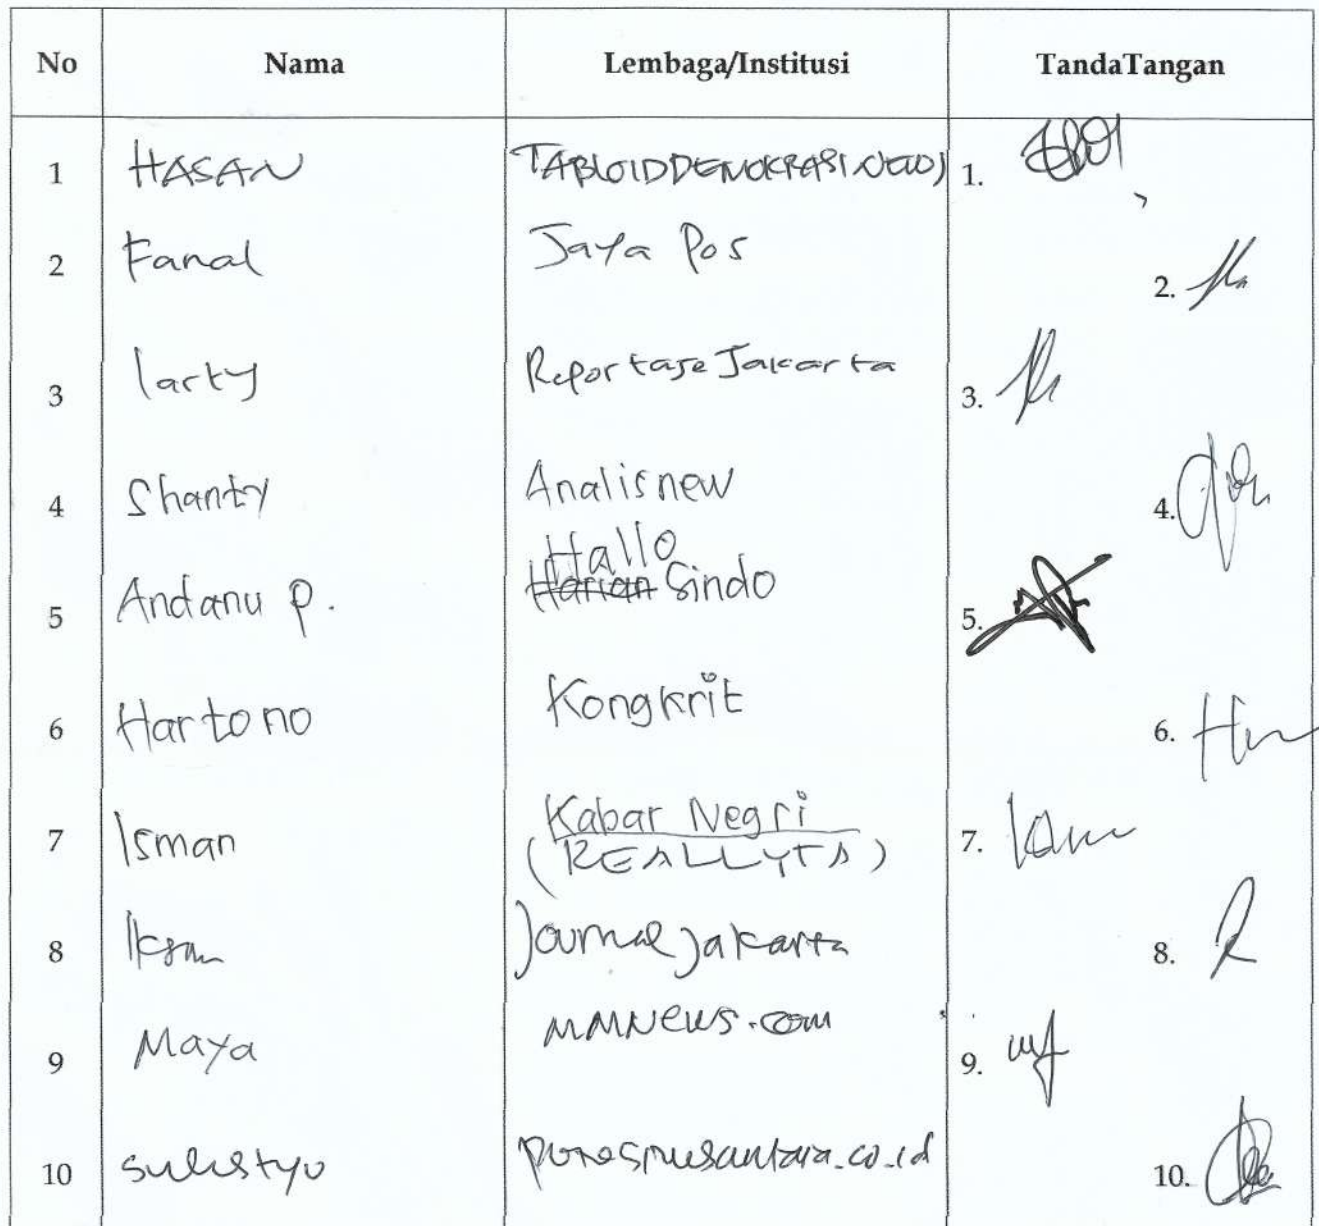 No Nama Lembaga/Institusi TandaTangan
1 HASAN TABLOIDDEMOKRASINEWS 1.
2 Fanal Jaya Pos 2.
3 larty Reportase Jakarta 3.
4 Shanty Analisnew 4.
Hallo
5 Andanu P. Harian Sindo 5.
6 Hartono Kongkrit 6.
7 Isman Kabar Negri 7.
(REALLYTA)
8 Iksan Journal Jakarta 8.
9 Maya MMNews.com 9.
10 Sulistyo 10.